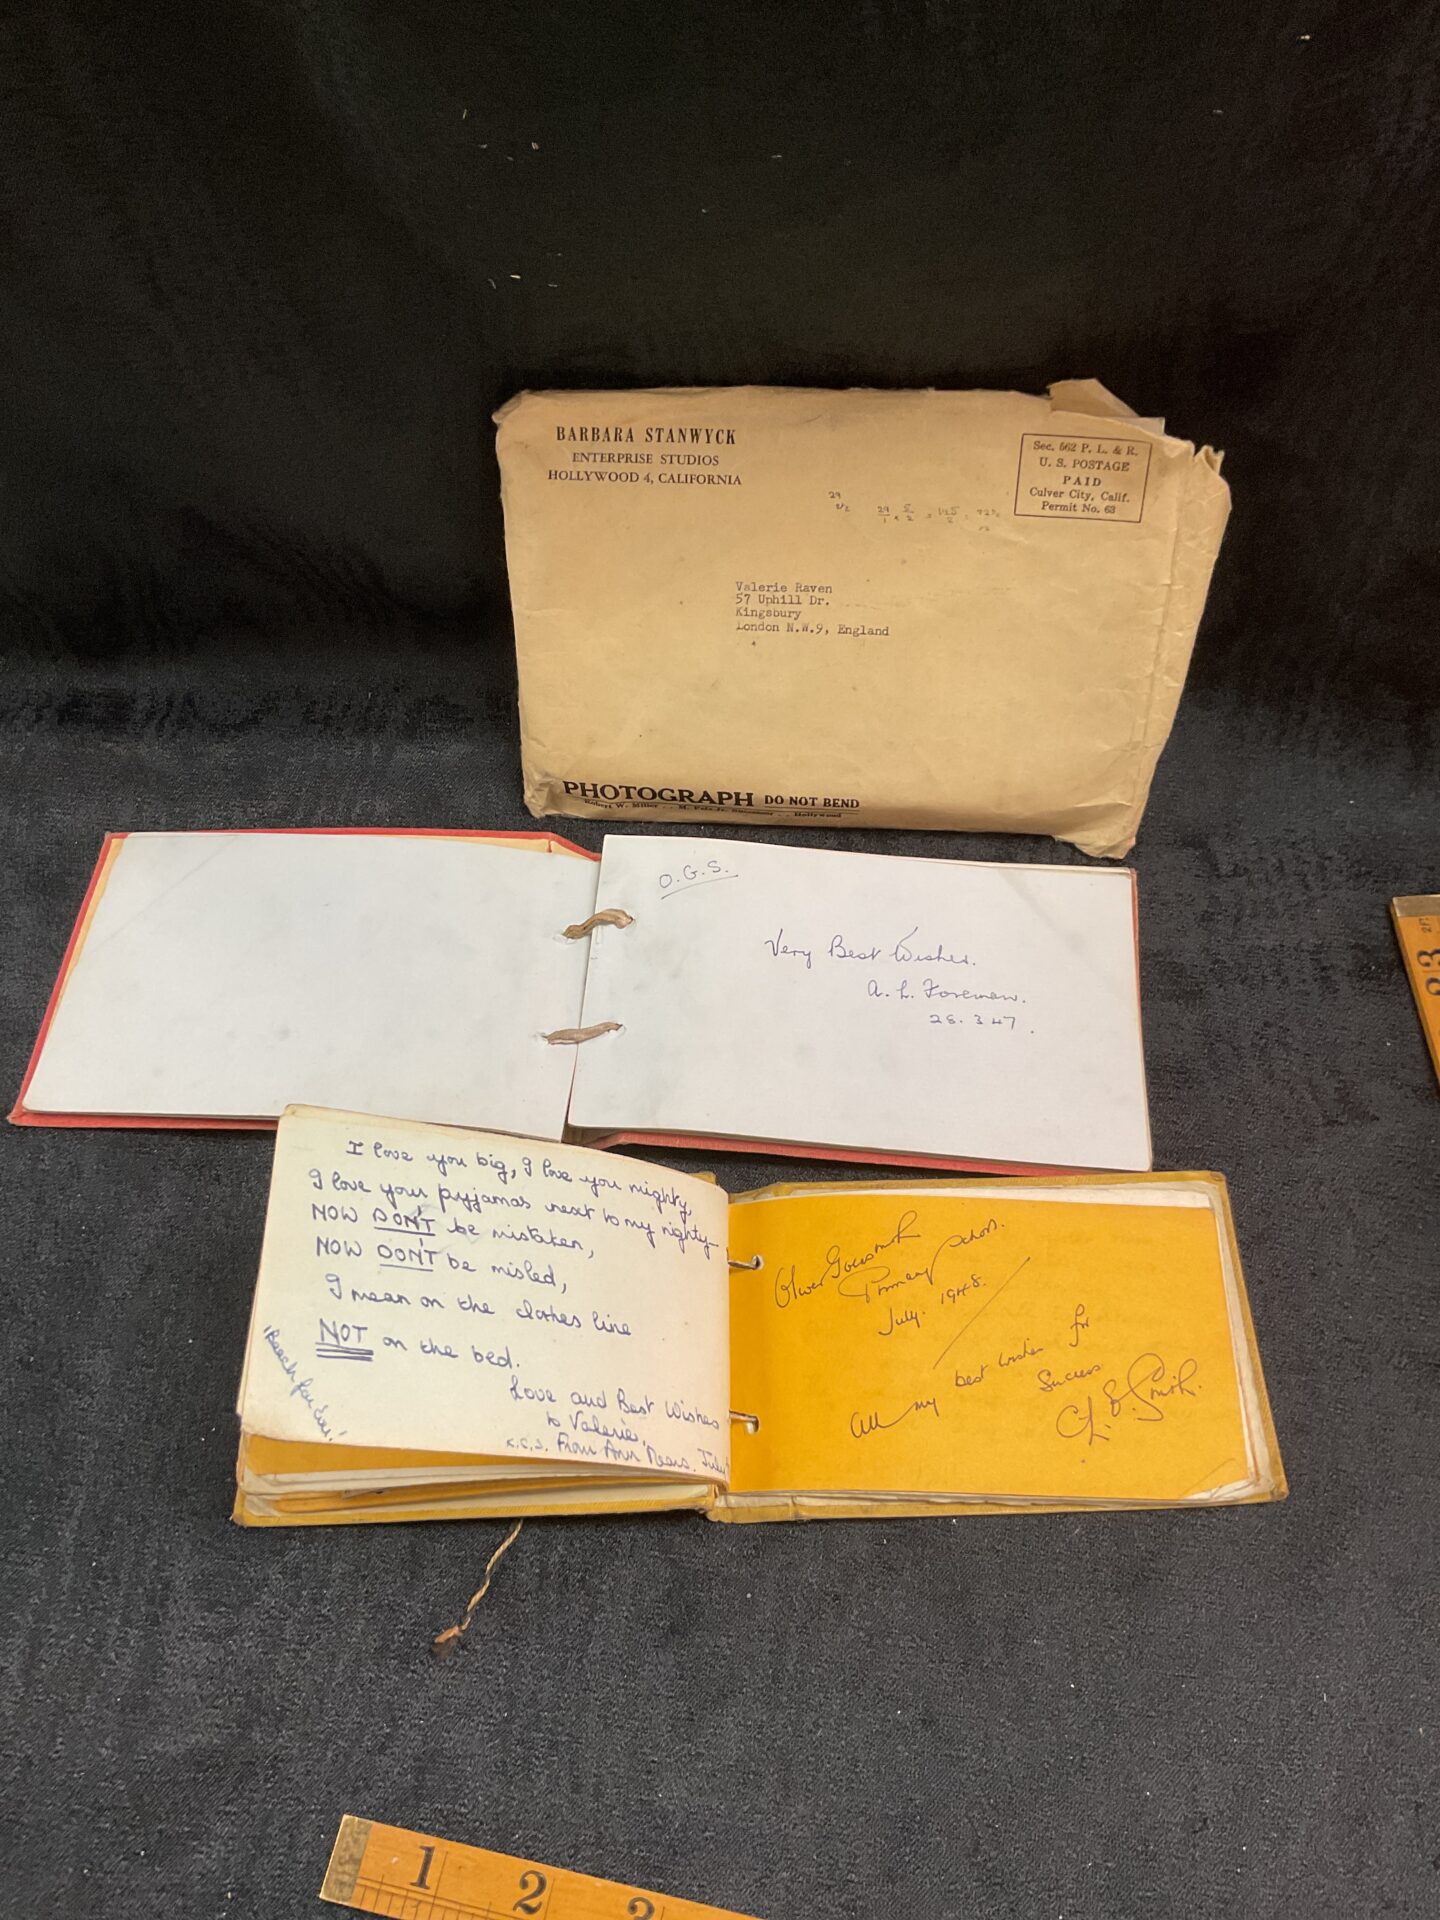 BARBARA STANWYCK
ENTERPRISE STUDIOS
HOLLYWOOD 4, CALIFORNIA
Sec. 562 P. L. & R.
U. S. POSTAGE
PAID
Culver City, Calif.
Permit No. 63
29
29/1 × 5/2 =
Valerie Raven
57 Uphill Dr.
Kingsbury
London N.W.9, England
PHOTOGRAPH DO NOT BEND
Robert W. Miller Hollywood
O.G.S.
Very Best Wishes.
A. L. Foreman.
28. 3 47.
I love you big, I love you mighty,
I love your pyjamas next to my nighty—
NOW DON'T be mistaken,
NOW DON'T be misled,
I mean on the clothes line
NOT on the bed.
Love and Best Wishes
to Valerie,
K.C.S. From Ann July
Oliver Goldsmith
Primary School.
July. 1948.
All my best wishes for
Success
E. Smith.
23
1 2 3